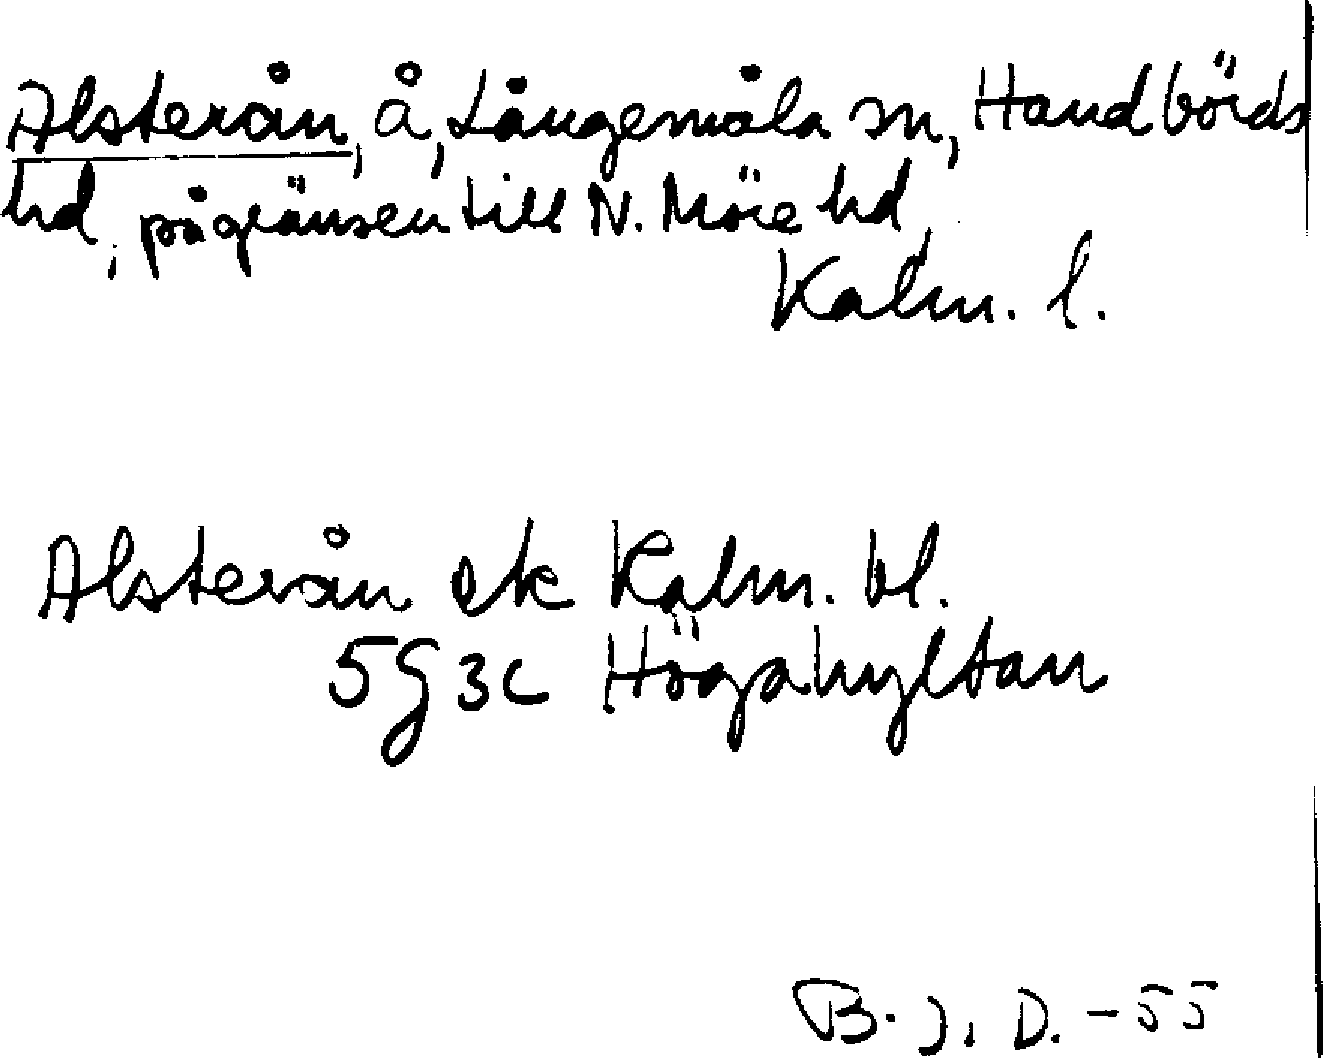 Alsterån, å, Långemåla sn, Handbörds
hd, på gränsen till N. Möre hd,
Kalm. l.
Alsterån ek Kalm. bl.
5G3c Högahyltan
B. J. D. - 55